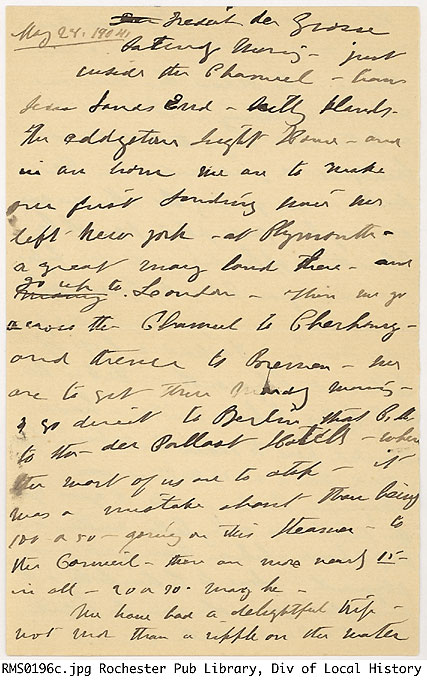 May 28. 1904
Frederick der Grosse
Saturday Morning - just
inside the Channel - have
seen Lands End - Scilly Islands -
the eddystone Light House - and
in an hour we are to make
our first landing since we
left New York - at Plymouth -
a great many land there - and
go up to London - Then we go
across the Channel to Cherbourg -
and thence to Bremen - we
are to get there Monday morning -
& go direct to Berlin that P.M.
to the - der Pallast Hotel - where
the most of us are to stop - it
was a mistake about there being
100 or 50 - going on this Steamer - to
the Council - there are more nearly 15 -
in all - 20 or 30 - may be -
We have had a delightful trip -
not more than a ripple on the water
RMS0196c.jpg Rochester Pub Library, Div of Local History